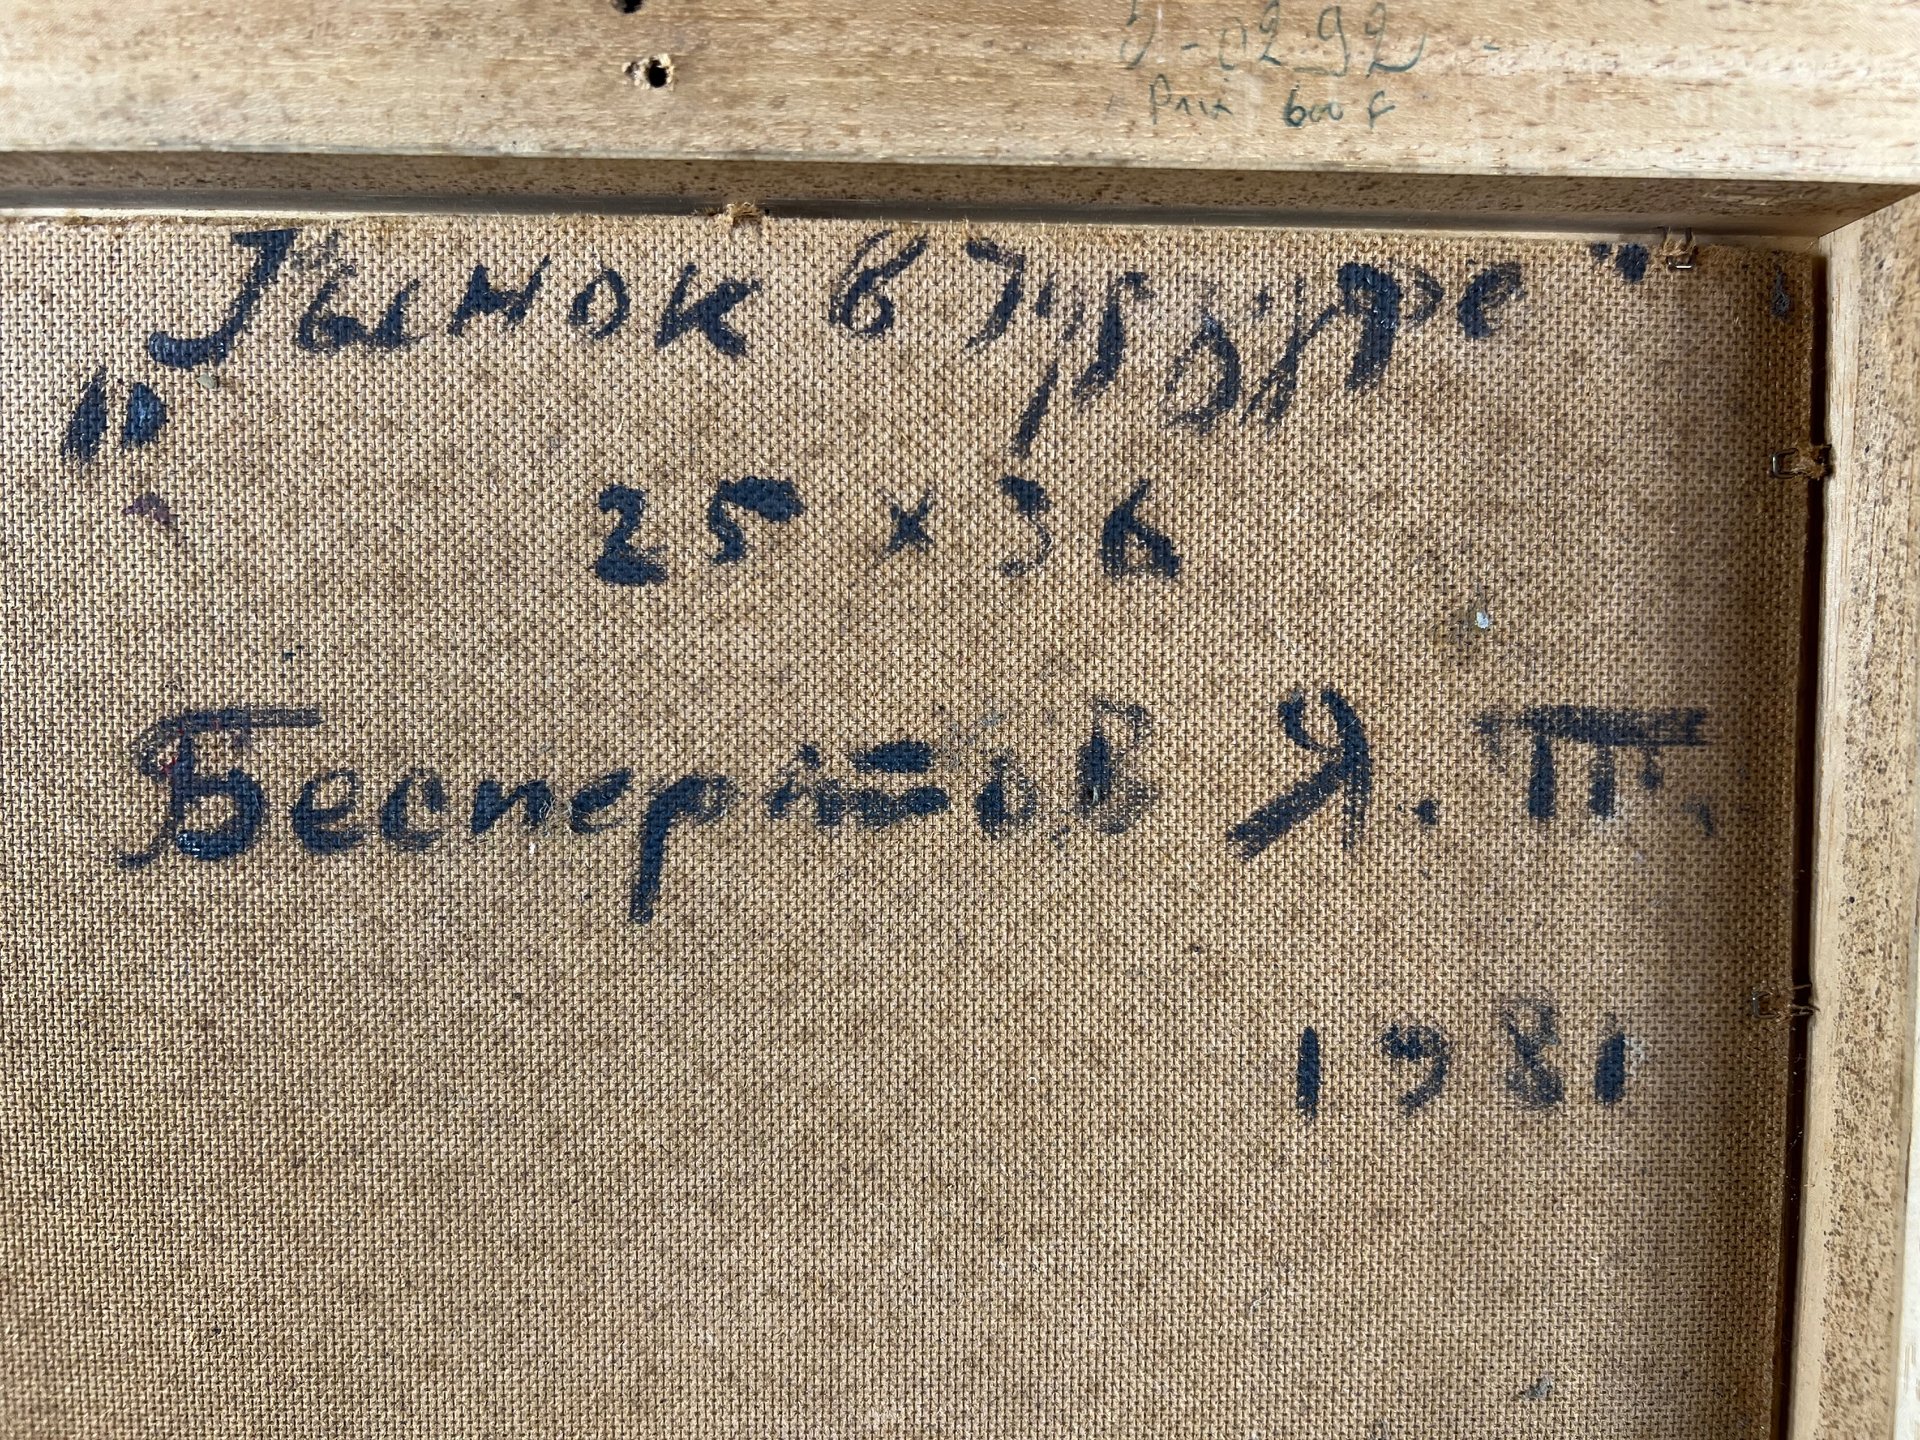 -02.92
Prix 600 F
"Рынок в Гурзуфе"
25 x 36
Бесперстов Я. Т.
1981